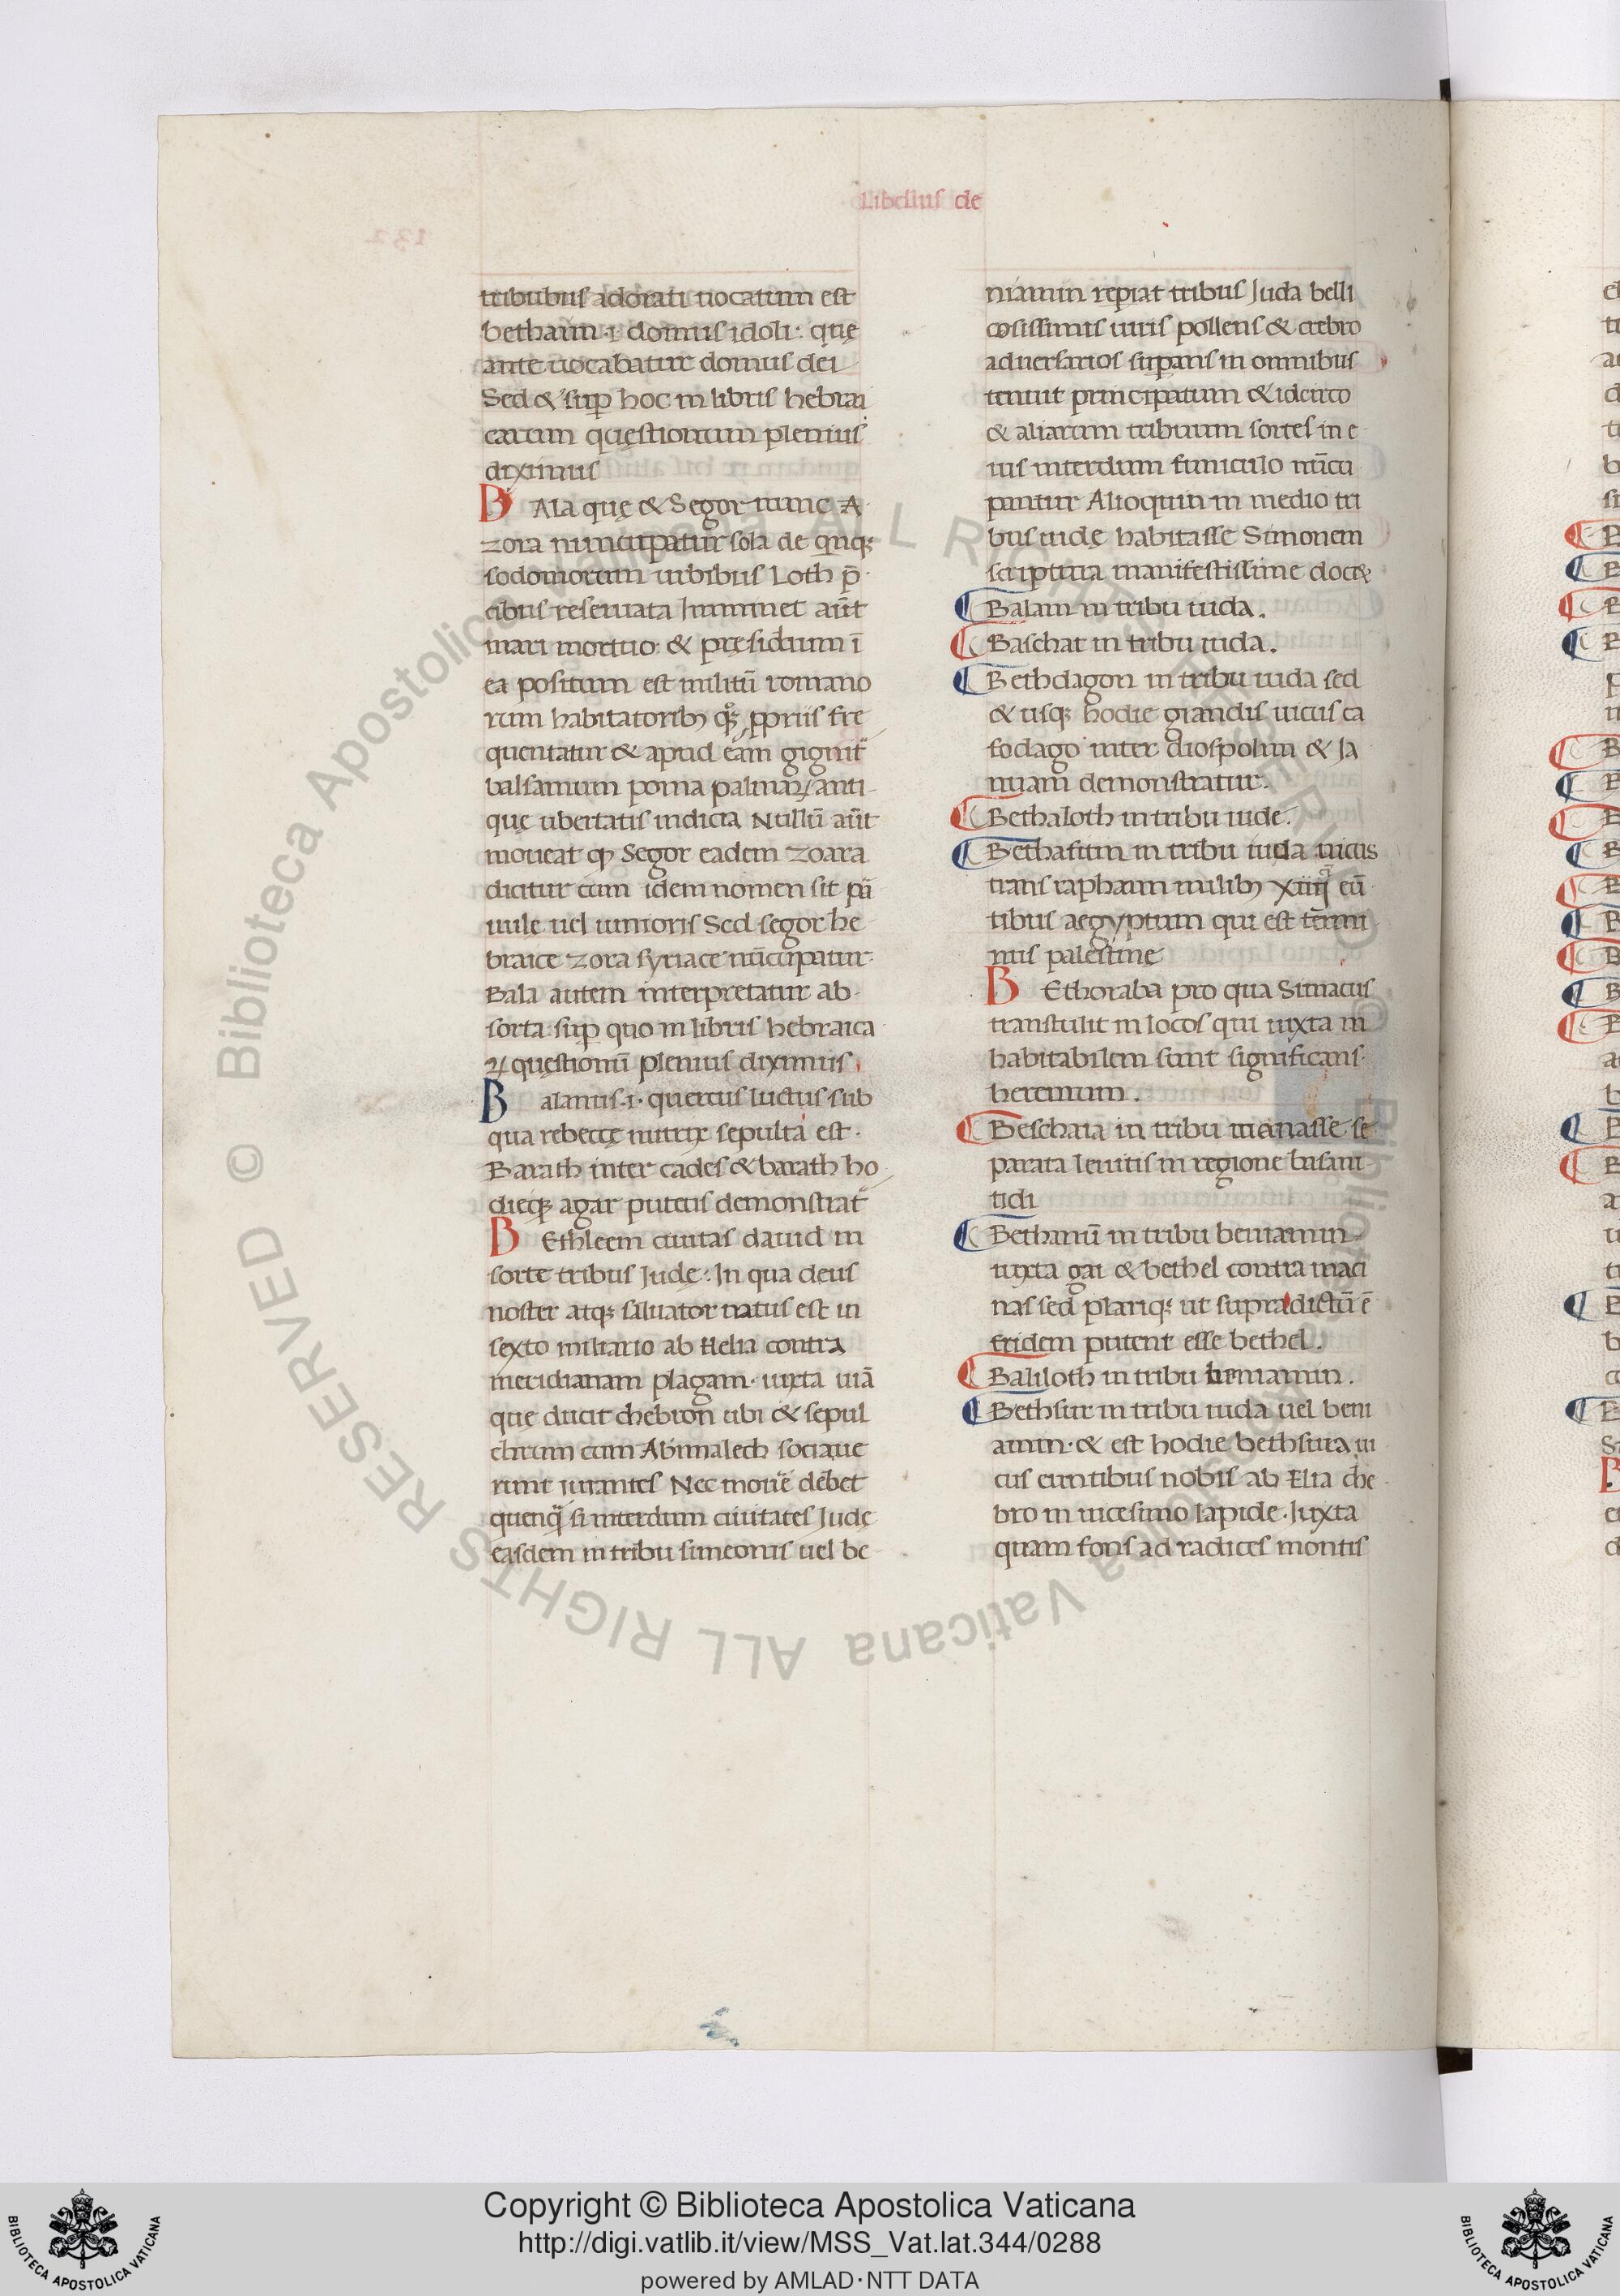 Libellus de
tribubus adorati uocatum est
bethaun ·i· domus idoli: quę
ante uocabatur domus dei
Sed & sup̄ hoc in libris hebrai
carum quęstionum plenius
diximus
BAla quę & Segor nunc A
zora nuncupatur sola de quinqꝫ
sodomorum urbibus Loth p̄
cibus reseruata Imminet aūt
mari mortuo: & pręsidium ī
ea positum est militū romano
rum habitatoribꝫ qͦꝫ ꝓpriis fre
quentatur & apud eam gignit̄
balsamum poma palmaꝝ anti
quę ubertatis indicia Nullū aūt
moueat ꝙ Segor eadem zoara
dicitur cum idem nomen sit pa͞
uule uel iunioris Sed segor he
braice zora syriace nūcupatur
Bala autem interpretatur ab
sorta sup̄ quo in libris hebraica
ꝝ quęstionū plenius diximus
Balanus ·i· quercus luctus sub
qua rebeccę nutrix sepulta est ·
Barath inter cades & barath ho
dieqꝫ agar puteus demonstrat̄
BEthleem ciuitas dauid in
sorte tribus Iudę: In qua deus
noster atqꝫ saluator natus est in
sexto miliario ab Helia contra
meridianam plagam · iuxta uiā
quę ducit chebron ubi & sepul
chrum cum Abimalech sociaue
runt iurantes Nec mouē debet
quenq̄ si interdum ciuitates Iudę
easdem in tribu simeonis uel be
niamin repiat tribus Iuda belli
cosissimis uiris pollens & crebro
aduersarios supans in omnibus
tenuit principatum & idcirco
& aliarum tribuum sortes in e
ius interdum funiculo nūcu
pantur Alioquin in medio tri
bus iudę habitasse Simonem
scriptura manifestissime docet
Balam in tribu iuda .
Baschat in tribu iuda .
Bethdagon in tribu iuda sed
& usqꝫ hodie grandis uicus ca
fodago inter diospolim & Ja
nuam demonstratur .
Bethaloth in tribu iude .
Bethafum in tribu iuda uicus
trans raphaim milibꝫ xiiij eū
tibus aegyptum qui est termi
nus palestinę
BEthoraba pro qua Simacus
transtulit in locos qui iuxta in
habitabilem sunt significans
heremum .
Beschara in tribu manasse se
parata leuitis in regione basani
tidi
Bethanū in tribu beniamin
iuxta gai & bethel contra maci
nas sed pleriqꝫ ut supradictū ē
eridem putent esse bethel .
Baliloth in tribu beniamin .
Bethsur in tribu iuda uel beni
amin · & est hodie bethsura ui
cus euntibus nobis ab Elia che
bro in uicesimo lapide · Iuxta
quam fons ad radices montis
Copyright © Biblioteca Apostolica Vaticana
http://digi.vatlib.it/view/MSS_Vat.lat.344/0288
powered by AMLAD·NTT DATA
BIBLIOTECA APOSTOLICA VATICANA
BIBLIOTECA APOSTOLICA VATICANA
© Biblioteca Apostolica Vaticana ALL RIGHTS RESERVED
© Biblioteca Apostolica Vaticana ALL RIGHTS RESERVED